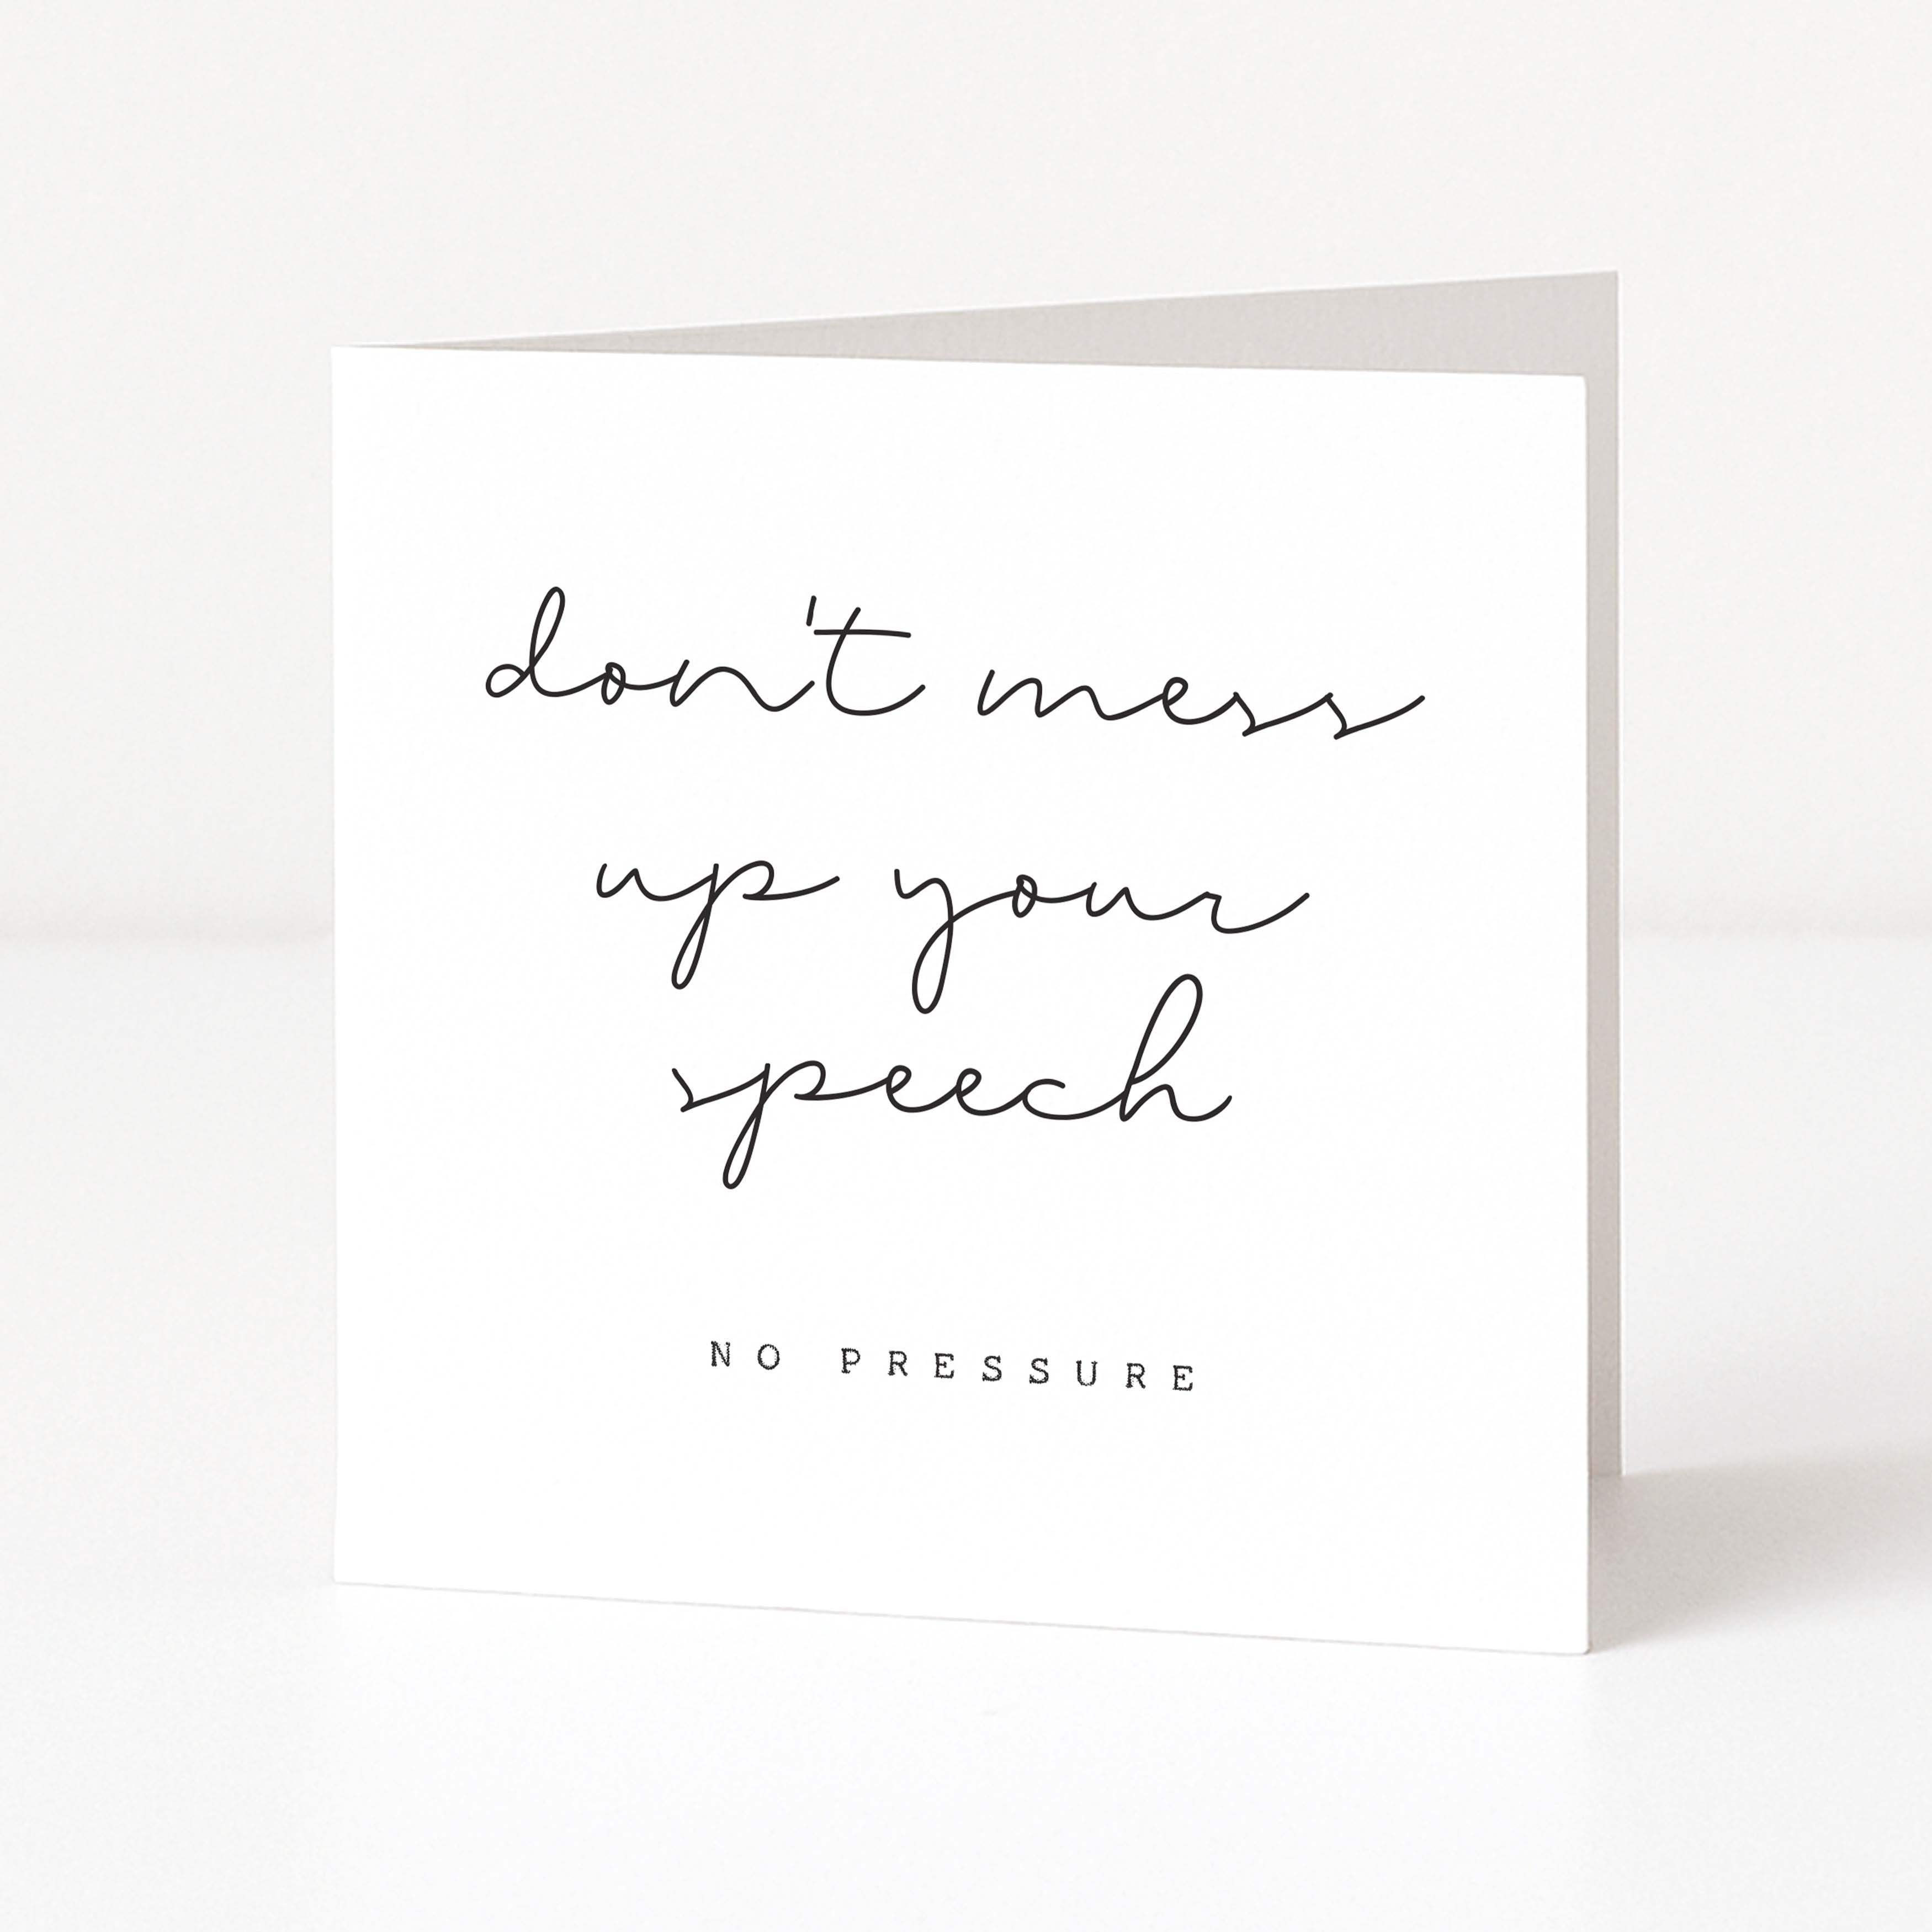 don't mess
up your
speech
NO PRESSURE